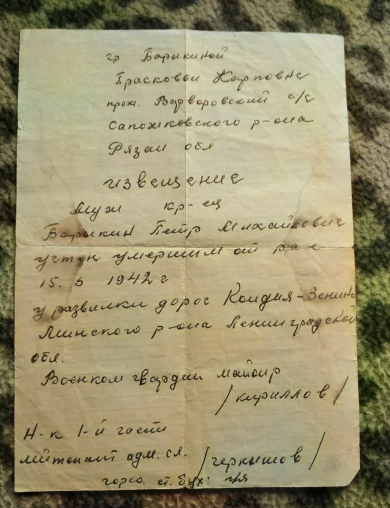 гр Барыкиной
Прасковьи Карповне
прож. Варваровский с/с
Сапожковского р-она
Рязан обл
извещение
Муж кр-ец
Барыкин Петр Михайлович
учтен умершим от ран
15. 1942 г
у развилки дорог Кондия - Зенино
Мгинского р-она Ленинградской
обл.
Военком гвардии майор
/кириллов/
Н-к 1-й части
адм. сл. /чернышов/